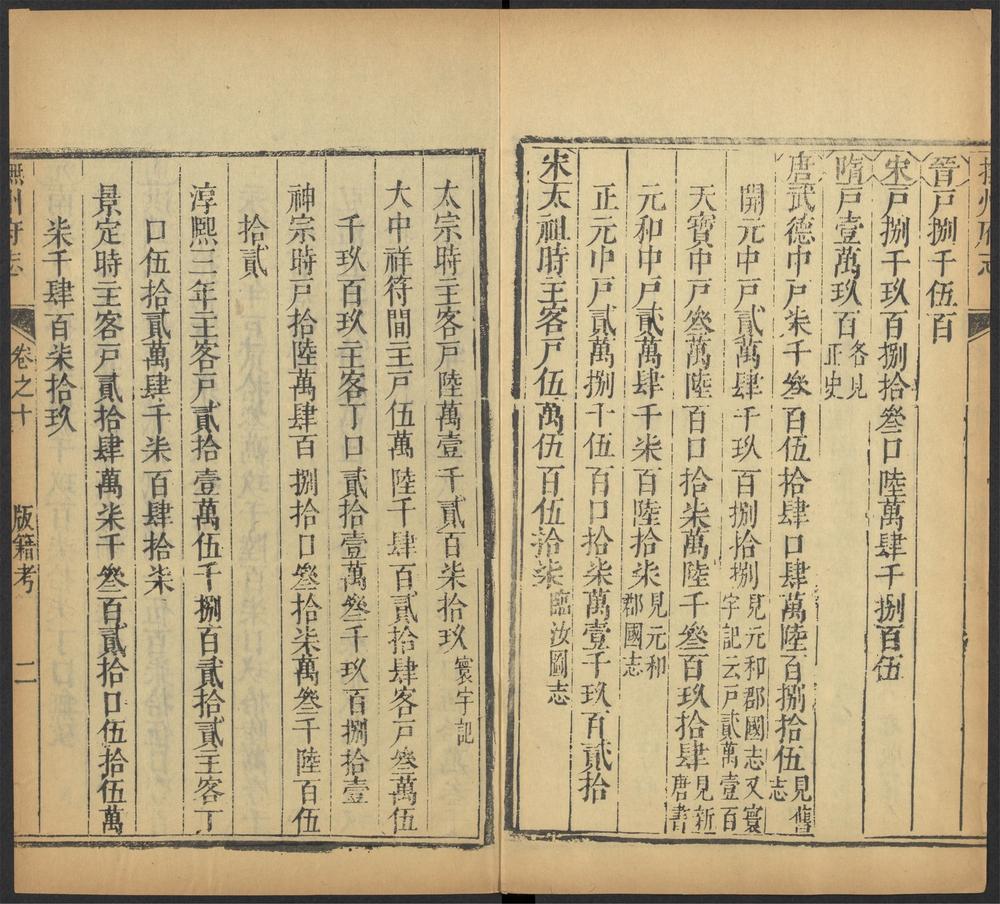 撫州府志
晉戸捌千伍百
宋戸捌千玖百捌拾叄口陸萬肆千捌百伍
隋戸壹萬玖百各見正史
唐武德中戸柒千叄百伍拾肆口肆萬陸百捌拾伍見舊志
開元中戸貳萬肆千玖百捌拾捌見元和郡國志又寰宇記云戸貳萬壹百
天寶中戸叄萬陸百口拾柒萬陸千叄百玖拾肆見新唐書
元和中戸貳萬肆千柒百陸拾柒見元和郡國志
正元中戸貳萬捌千伍百口拾柒萬壹千玖百貳拾
宋太祖時主客戸伍萬伍百伍拾柒臨汝圖志
太宗時主客戸陸萬壹千貳百柒拾玖寰宇記
大中祥符間主戸伍萬陸千肆百貳拾肆客戸叄萬伍
千玖百玖主客丁口貳拾壹萬叄千玖百捌拾壹
神宗時戸拾陸萬肆百捌拾口叄拾柒萬叄千陸百伍
拾貳
淳熙三年主客戸貳拾壹萬伍千捌百貳拾貳主客丁
口伍拾貳萬肆千柒百肆拾柒
景定時主客戸貳拾肆萬柒千叄百貳拾口伍拾伍萬
柒千肆百柒拾玖
撫州府志 卷之十 版籍考 二